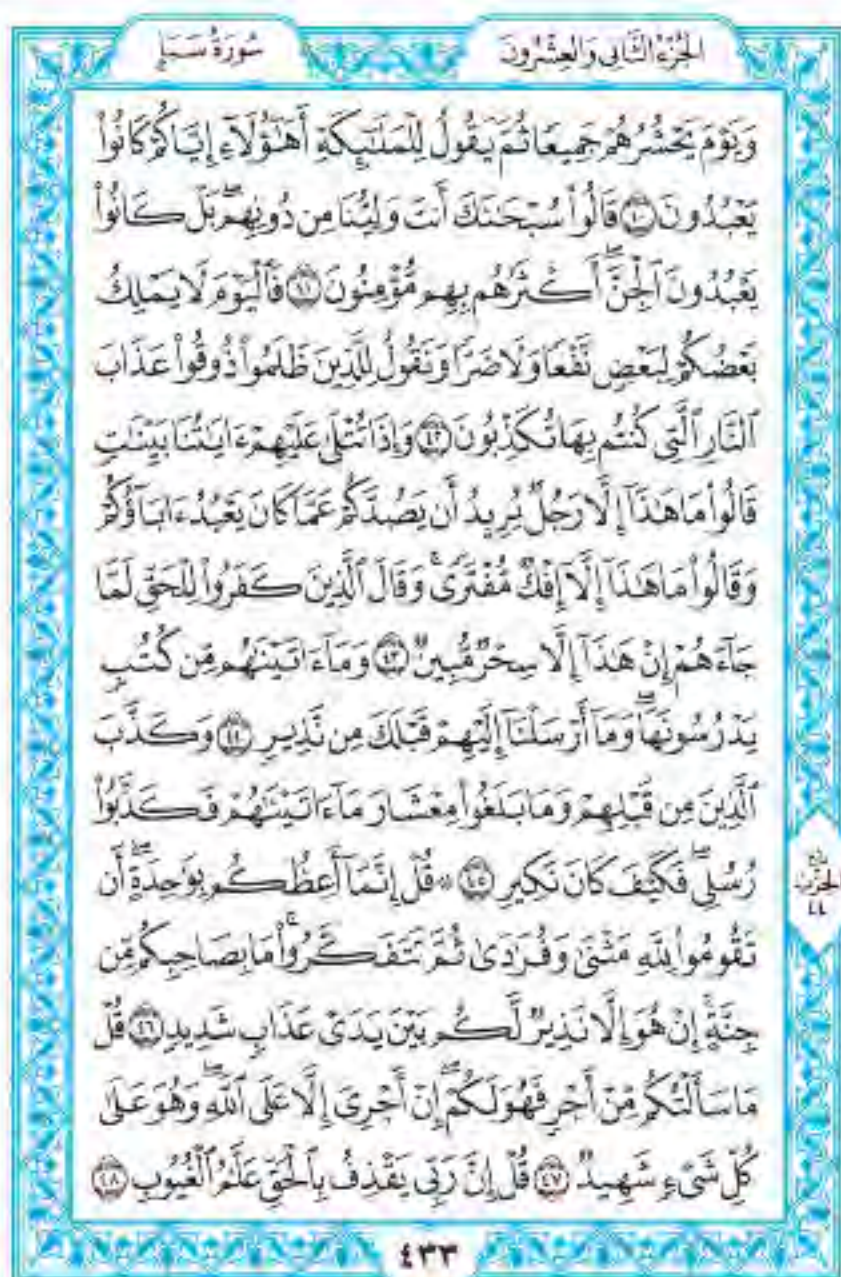 الجزء الثاني والعشرون
سورة سبإ
وَيَوْمَ يَحْشُرُهُمْ جَمِيعًا ثُمَّ يَقُولُ لِلْمَلَٰٓئِكَةِ أَهَٰٓؤُلَآءِ إِيَّاكُمْ كَانُوا۟
يَعْبُدُونَ ٤٠ قَالُوا۟ سُبْحَٰنَكَ أَنتَ وَلِيُّنَا مِن دُونِهِمۖ بَلْ كَانُوا۟
يَعْبُدُونَ ٱلْجِنَّۖ أَكْثَرُهُم بِهِم مُّؤْمِنُونَ ٤١ فَٱلْيَوْمَ لَا يَمْلِكُ
بَعْضُكُمْ لِبَعْضٍ نَّفْعًا وَلَا ضَرًّا وَنَقُولُ لِلَّذِينَ ظَلَمُوا۟ ذُوقُوا۟ عَذَابَ
ٱلنَّارِ ٱلَّتِى كُنتُم بِهَا تُكَذِّبُونَ ٤٢ وَإِذَا تُتْلَىٰ عَلَيْهِمْ ءَايَٰتُنَا بَيِّنَٰتٍ
قَالُوا۟ مَا هَٰذَآ إِلَّا رَجُلٌ يُرِيدُ أَن يَصُدَّكُمْ عَمَّا كَانَ يَعْبُدُ ءَابَآؤُكُمْ
وَقَالُوا۟ مَا هَٰذَآ إِلَّآ إِفْكٌ مُّفْتَرًىۚ وَقَالَ ٱلَّذِينَ كَفَرُوا۟ لِلْحَقِّ لَمَّا
جَآءَهُمْ إِنْ هَٰذَآ إِلَّا سِحْرٌ مُّبِينٌ ٤٣ وَمَآ ءَاتَيْنَٰهُم مِّن كُتُبٍ
يَدْرُسُونَهَاۖ وَمَآ أَرْسَلْنَآ إِلَيْهِمْ قَبْلَكَ مِن نَّذِيرٍ ٤٤ وَكَذَّبَ
ٱلَّذِينَ مِن قَبْلِهِمْ وَمَا بَلَغُوا۟ مِعْشَارَ مَآ ءَاتَيْنَٰهُمْ فَكَذَّبُوا۟
رُسُلِىۖ فَكَيْفَ كَانَ نَكِيرِ ٤٥ ۞ قُلْ إِنَّمَآ أَعِظُكُم بِوَٰحِدَةٍۖ أَن
تَقُومُوا۟ لِلَّهِ مَثْنَىٰ وَفُرَٰدَىٰ ثُمَّ تَتَفَكَّرُوا۟ۚ مَا بِصَاحِبِكُم مِّن
جِنَّةٍۚ إِنْ هُوَ إِلَّا نَذِيرٌ لَّكُم بَيْنَ يَدَىْ عَذَابٍ شَدِيدٍ ٤٦ قُلْ
مَا سَأَلْتُكُم مِّنْ أَجْرٍ فَهُوَ لَكُمْۖ إِنْ أَجْرِىَ إِلَّا عَلَى ٱللَّهِۖ وَهُوَ عَلَىٰ
كُلِّ شَىْءٍ شَهِيدٌ ٤٧ قُلْ إِنَّ رَبِّى يَقْذِفُ بِٱلْحَقِّ عَلَّٰمُ ٱلْغُيُوبِ ٤٨
الحزب
٤٤
٤٣٣